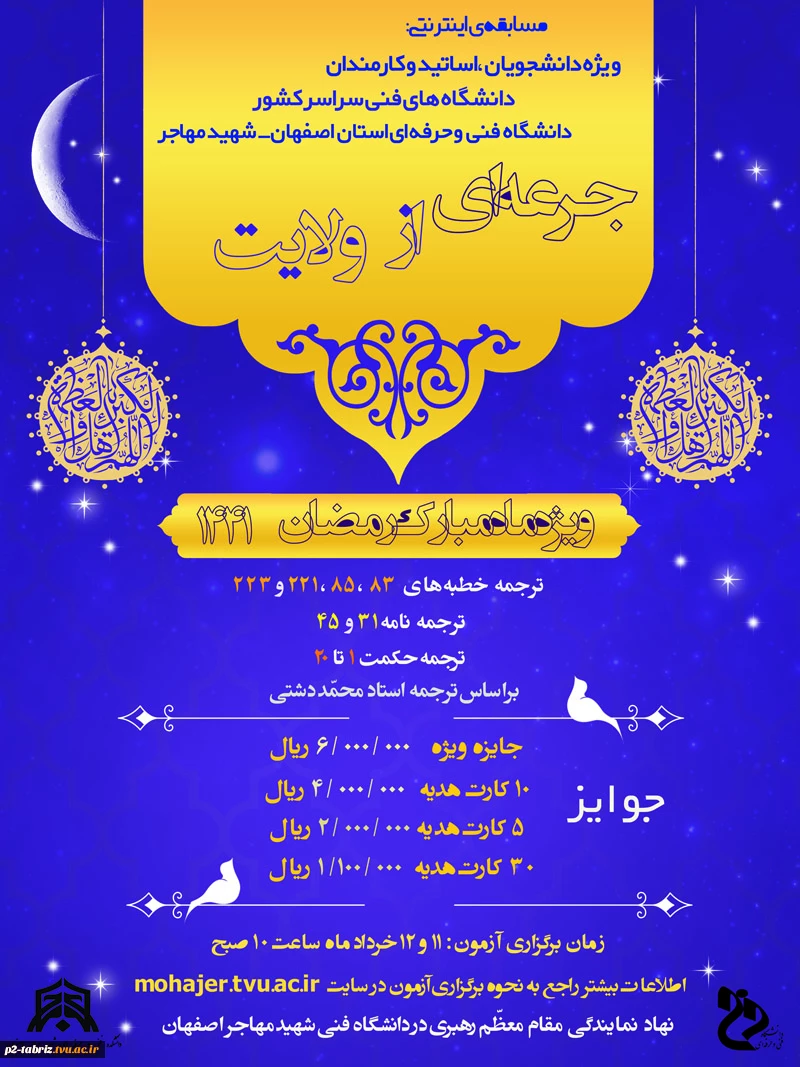 مسابقه‌ی اینترنتی:
ویژه دانشجویان ،اساتید و کارمندان
دانشگاه های فنی سراسر کشور
دانشگاه فنی و حرفه ای استان اصفهان_ شهید مهاجر
جرعه‌ای از ولایت
ویژه ماه مبارک رمضان ۱۴۴۱
ترجمه خطبه های ۸۳ ،۸۵ ،۲۲۱ و ۲۲۳
ترجمه نامه ۳۱ و ۴۵
ترجمه حکمت ۱ تا ۲۰
براساس ترجمه استاد محمّد دشتی
جوایز
جایزه ویژه ۶/۰۰۰/۰۰۰ ریال
۱۰ کارت هدیه ۴/۰۰۰/۰۰۰ ریال
۵ کارت هدیه ۲/۰۰۰/۰۰۰ ریال
۳۰ کارت هدیه ۱/۱۰۰/۰۰۰ ریال
زمان برگزاری آزمون : ۱۱ و ۱۲ خرداد ماه ساعت ۱۰ صبح
اطلاعات بیشتر راجع به نحوه برگزاری آزمون در سایت mohajer.tvu.ac.ir
نهاد نمایندگی مقام معظّم رهبری در دانشگاه فنی شهید مهاجر اصفهان
p2-tabriz.tvu.ac.ir